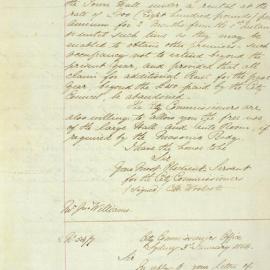 the Town Hall under a rental at the
rate of £800 (Eight hundred pounds) per
annum for
or until such time as they may be
enabled to obtain other premises, such
occupancy not to extend beyond the
present year, and provided that all
claim for additional Rent for the past
year beyond the £200 paid by the City
Council, be abandoned.
The City Commissioners are
also willing to allow you the free use
of the large Hall and Ante Room, if
required by the Masonic Body.
I have the honor to be
Sir
Your most Obedient Servant
for the City Commissioners
(signed) C. H. Woolcott
Mr Jas Williams
City Commissioners Office
Sydney 3 January 1854
Sir
In reply to your letter of